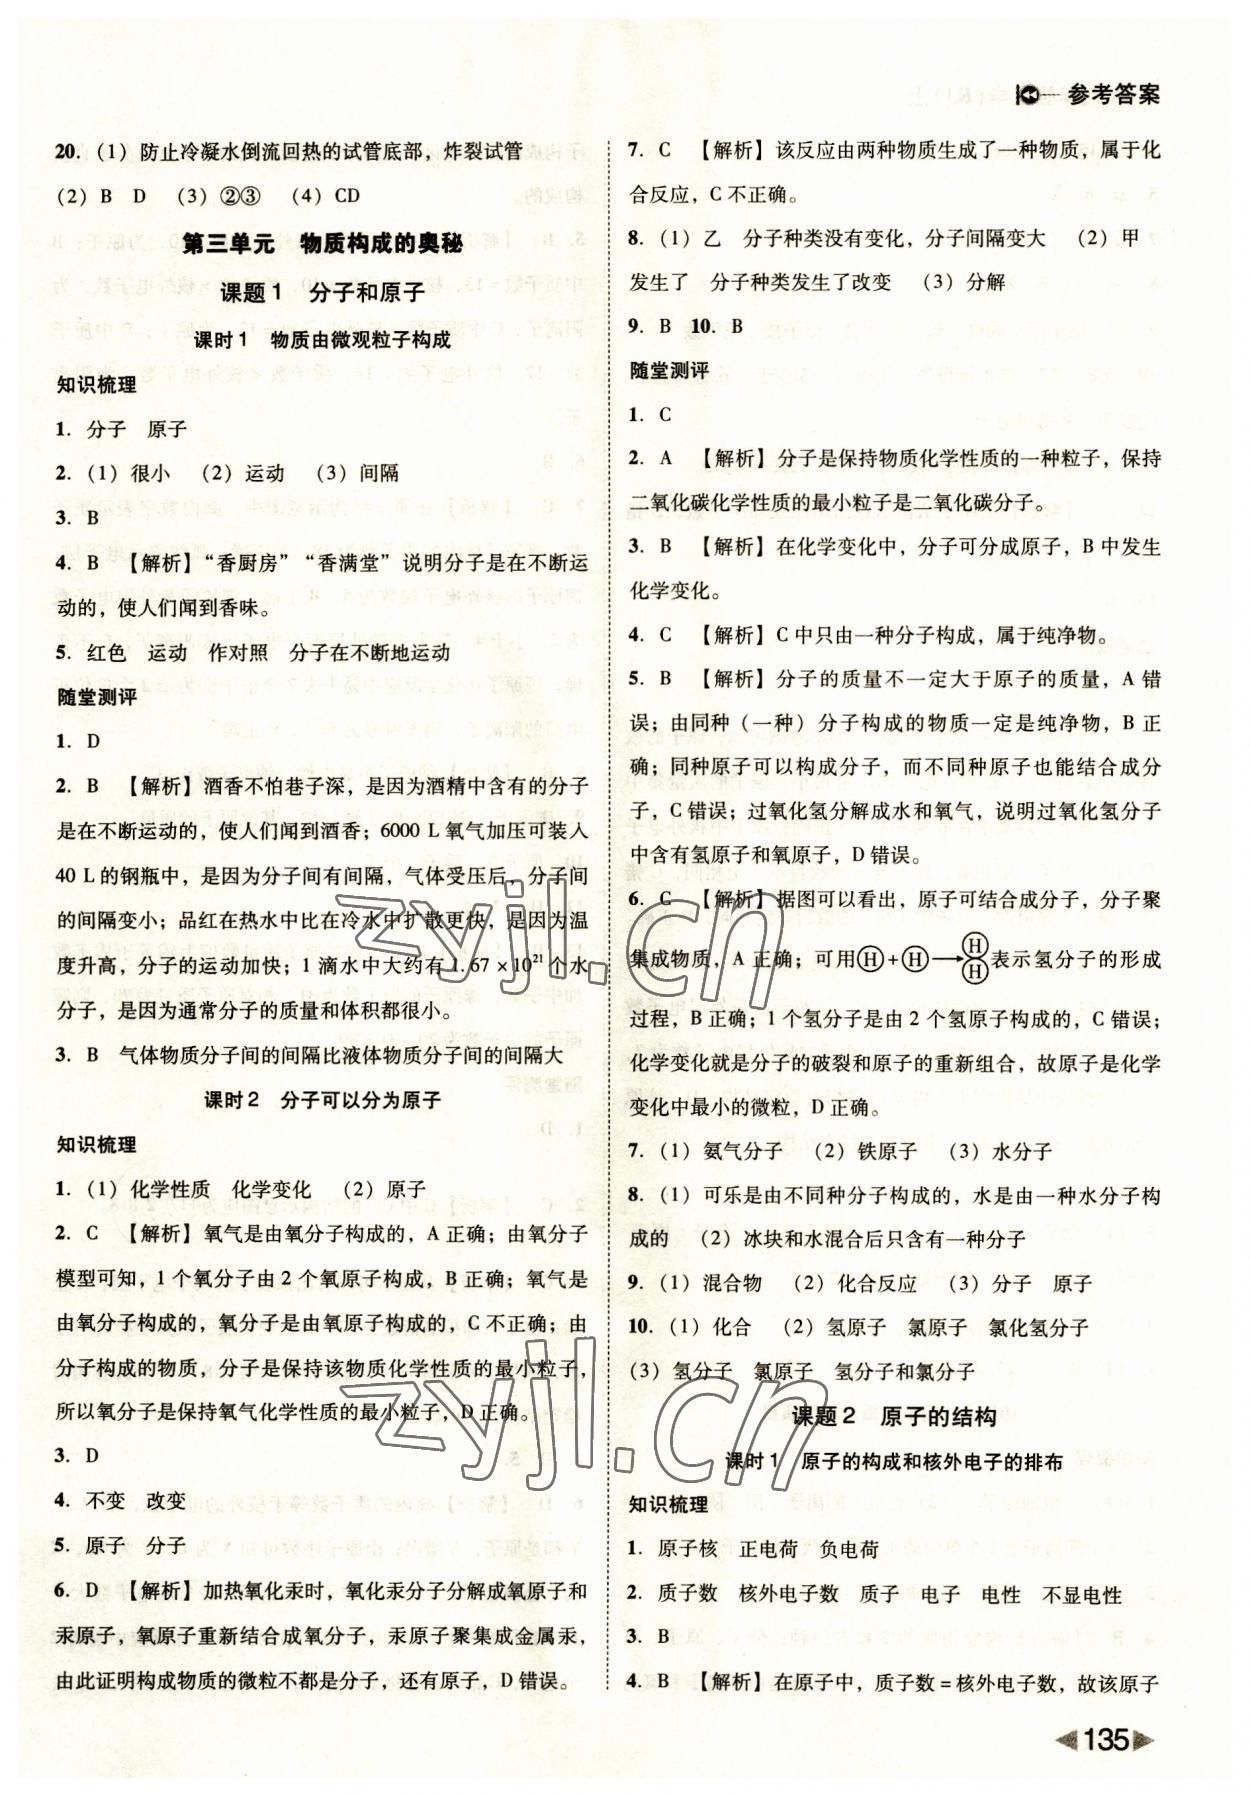 参考答案
20. (1) 防止冷凝水倒流回热的试管底部，炸裂试管
(2) B D (3) ②③ (4) CD
第三单元 物质构成的奥秘
课题1 分子和原子
课时1 物质由微观粒子构成
知识梳理
1. 分子 原子
2. (1) 很小 (2) 运动 (3) 间隔
3. B
4. B 【解析】“香厨房”“香满堂”说明分子是在不断运
动的，使人们闻到香味。
5. 红色 运动 作对照 分子在不断地运动
随堂测评
1. D
2. B 【解析】酒香不怕巷子深，是因为酒精中含有的分子
是在不断运动的，使人们闻到酒香；6000 L 氧气加压可装入
40 L 的钢瓶中，是因为分子间有间隔，气体受压后，分子间
的间隔变小；品红在热水中比在冷水中扩散更快，是因为温
度升高，分子的运动加快；1 滴水中大约有 1.67×10²¹ 个水
分子，是因为通常分子的质量和体积都很小。
3. B 气体物质分子间的间隔比液体物质分子间的间隔大
课时2 分子可以分为原子
知识梳理
1. (1) 化学性质 化学变化 (2) 原子
2. C 【解析】氧气是由氧分子构成的，A 正确；由氧分子
模型可知，1 个氧分子由 2 个氧原子构成，B 正确；氧气是
由氧分子构成的，氧分子是由氧原子构成的，C 不正确；由
分子构成的物质，分子是保持该物质化学性质的最小粒子，
所以氧分子是保持氧气化学性质的最小粒子，D 正确。
3. D
4. 不变 改变
5. 原子 分子
6. D 【解析】加热氧化汞时，氧化汞分子分解成氧原子和
汞原子，氧原子重新结合成氧分子，汞原子聚集成金属汞，
由此证明构成物质的微粒不都是分子，还有原子，D 错误。
7. C 【解析】该反应由两种物质生成了一种物质，属于化
合反应，C 不正确。
8. (1) 乙 分子种类没有变化，分子间隔变大 (2) 甲
发生了 分子种类发生了改变 (3) 分解
9. B 10. B
随堂测评
1. C
2. A 【解析】分子是保持物质化学性质的一种粒子，保持
二氧化碳化学性质的最小粒子是二氧化碳分子。
3. B 【解析】在化学变化中，分子可分成原子，B 中发生
化学变化。
4. C 【解析】C 中只由一种分子构成，属于纯净物。
5. B 【解析】分子的质量不一定大于原子的质量，A 错
误；由同种（一种）分子构成的物质一定是纯净物，B 正
确；同种原子可以构成分子，而不同种原子也能结合成分
子，C 错误；过氧化氢分解成水和氧气，说明过氧化氢分子
中含有氢原子和氧原子，D 错误。
6. C 【解析】据图可以看出，原子可结合成分子，分子聚
集成物质，A 正确；可用Ⓗ+Ⓗ→ⒽⒽ表示氢分子的形成
过程，B 正确；1 个氢分子是由 2 个氢原子构成的，C 错误；
化学变化就是分子的破裂和原子的重新组合，故原子是化学
变化中最小的微粒，D 正确。
7. (1) 氨气分子 (2) 铁原子 (3) 水分子
8. (1) 可乐是由不同种分子构成的，水是由一种水分子构
成的 (2) 冰块和水混合后只含有一种分子
9. (1) 混合物 (2) 化合反应 (3) 分子 原子
10. (1) 化合 (2) 氢原子 氯原子 氯化氢分子
(3) 氢分子 氯原子 氢分子和氯分子
课题2 原子的结构
课时1 原子的构成和核外电子的排布
知识梳理
1. 原子核 正电荷 负电荷
2. 质子数 核外电子数 质子 电子 电性 不显电性
3. B
4. B 【解析】在原子中，质子数=核外电子数，故该原子
135
zyjl.cn
zyjl.cn